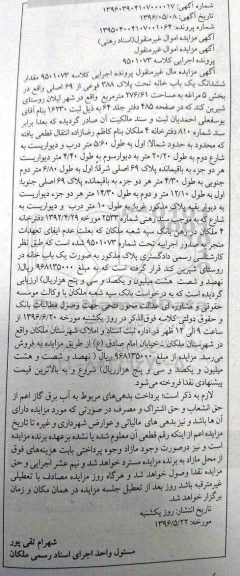 شماره آگهی: ۱۳۹۶۰۳۹۰۴۱۰۷۰۰۰۰۱۷
تاریخ آگهی: ۱۳۹۶/۰۵/۰۸
شماره پرونده: ۱۳۹۵۰۴۰۰۴۱۰۷۰۰۱۰۶۴
آگهی مزایده اموال غیرمنقول(اسناد رهنی)
آگهی مزایده اموال غیرمنقول
پرونده اجرایی کلاسه ۹۵۰۱۰۷۳
آگهی مزایده مال غیرمنقول پرونده اجرایی کلاسه ۹۵۰۱۰۷۳ مقدار
ششدانگ یک باب خانه تحت پلاک ۳۸۸ فرعی از ۶۹ اصلی واقع در
بخش ۵ مراغه به مساحت ۲۷۶/۶۱ مترمربع واقع در شهر لیلان روستای
شیرین کند که در صفحه ۴۸۵ دفتر جلد ۶۴ به ذیل ثبت ۱۶۲۳۰ بنام آقای
یوسفعلی احمدیان ثبت و سند مالکیت آن صادر گردیده که بعدا برابر
سند شماره ۸۱۰ دفترخانه ۴ ملکان بنام کاظم رضازاده انتقال قطعی یافته
که محدود به حدود شمالا: اول به طول ۵/۶۰ متر درب و دیواریست به
شارع دوم به طول ۲۰/۲۰ متر به دیوار سوم به طول ۴/۴۰ متر دیواریست
هر دو جزء به باقیمانده پلاک ۶۹ اصلی شرقا: اول به طول ۶/۸۰ متر دوم
جنوبی به طول ۴/۳۰ متر هر دو جزء به باقیمانده پلاک ۶۹ اصلی جنوبا:
اول به طول ۱۲/۱۰ متر و دوم به طول ۱۴/۳۰ متر هر دو جزء دیواریست
به دیوار بقیه پلاک مذکور غربا: به طول ۱۰ متر درب و دیواریست به
شارع که به موجب سند رهنی شماره ۲۵۳۳ مورخه ۱۳۹۲/۴/۲۹ دفترخانه
۴ ملکان در رهن بانک سپه شعبه ملکان که بعلت عدم ایفای تعهدات
منجر به صدور اجراییه تحت شماره ۹۵۰۱۰۷۳ شده است که طبق نظر
کارشناسی رسمی دادگستری پلاک مذکور به صورت یک باب خانه در
روستای شیرین کند قرار گرفته است که به مبلغ ۹۶۸۱۳۵۰۰۰ ریال(
نهصد و شصت هشت میلیون و یکصد و سی و پنج هزارریال) ارزیابی
گردیده است که به درخواست بانک سپه شعبه ملکان با وکالت موسسه
حقوقی و مشاوره ای عدالت محور صحت جهت وصول مطالبات بانک
و حقوق دولتی پلاک ثبتی فوق الذکر در روز یکشنبه مورخه ۱۳۹۶/۶/۲۰ از
ساعت ۹ الی ۱۲ ظهر در اداره ثبت اسناد و املاک شهرستان ملکان واقع
در شهرستان ملکان - خیابان امام صادق (ع) از طریق مزایده به فروش
می‌رسد. مزایده از مبلغ ۹۶۸۱۳۵۰۰۰ ریال ( نهصد و شصت و هشت
میلیون و یکصد و سی و پنج هزارریال) شروع و به بالاترین قیمت
پیشنهادی نقدا فروخته می‌شود.
لازم به ذکر است؛ پرداخت بدهی‌های مربوط به آب برق گاز اعم از
حق انشعاب و حق اشتراک و مصرف در صورتی که مورد مزایده دارای
آن ها باشد و نیز بدهی های مالیاتی و عوارض شهرداری و غیره تا تاریخ
مزایده اعم از اینکه رقم قطعی آن معلوم شده یا نشده برعهده برنده مزایده
است و نیز درصورت وجود مازاد وجوه پرداختی بابت هزینه‌های فوق
از محل مازاد به برنده مزایده مسترد خواهد شد و نیم عشر اجرایی و حق
مزایده نقدا وصول خواهد شد و هرگاه روز مزایده مصادف با تعطیلی
غیرمترقبه باشد روز بعد از تعطیل جلسه مزایده در همان مکان و زمان
برگزار خواهد شد.
تاریخ انتشار: روز یکشنبه
مورخه: ۱۳۹۶/۵/۲۲
شهرام تقی پور
مسئول واحد اجرای اسناد رسمی ملکان